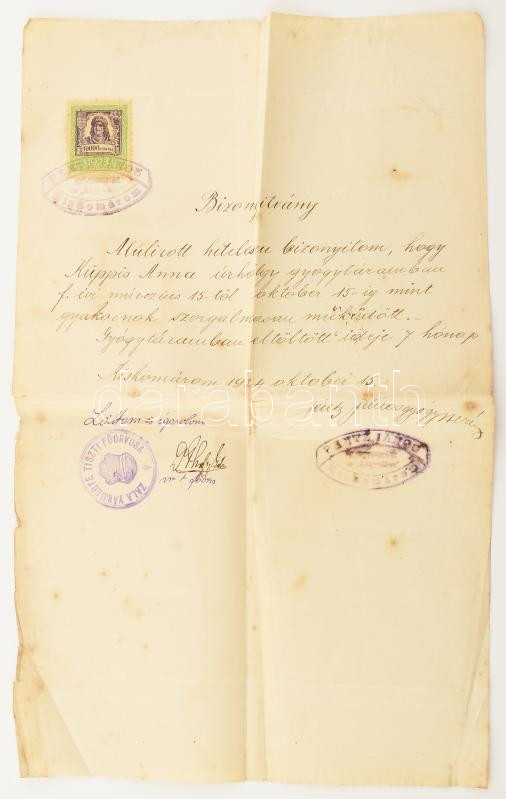 10000 KORONA
Kiskomárom
Bizonyítvány
Alulírott hitelesen bizonyítom, hogy
Küppis Anna úrhölgy gyógytáramban
f. évi március 15-től október 15-ig mint
gyakornok szorgalmasan működött.-
Gyógytáramban eltöltött ideje 7 hónap
Kiskomárom 1924 október 15
Láttam és igazolom
ZALA VÁRMEGYE TISZTI FŐORVOSA
JÁNOS
Kiskomárom
darabanth